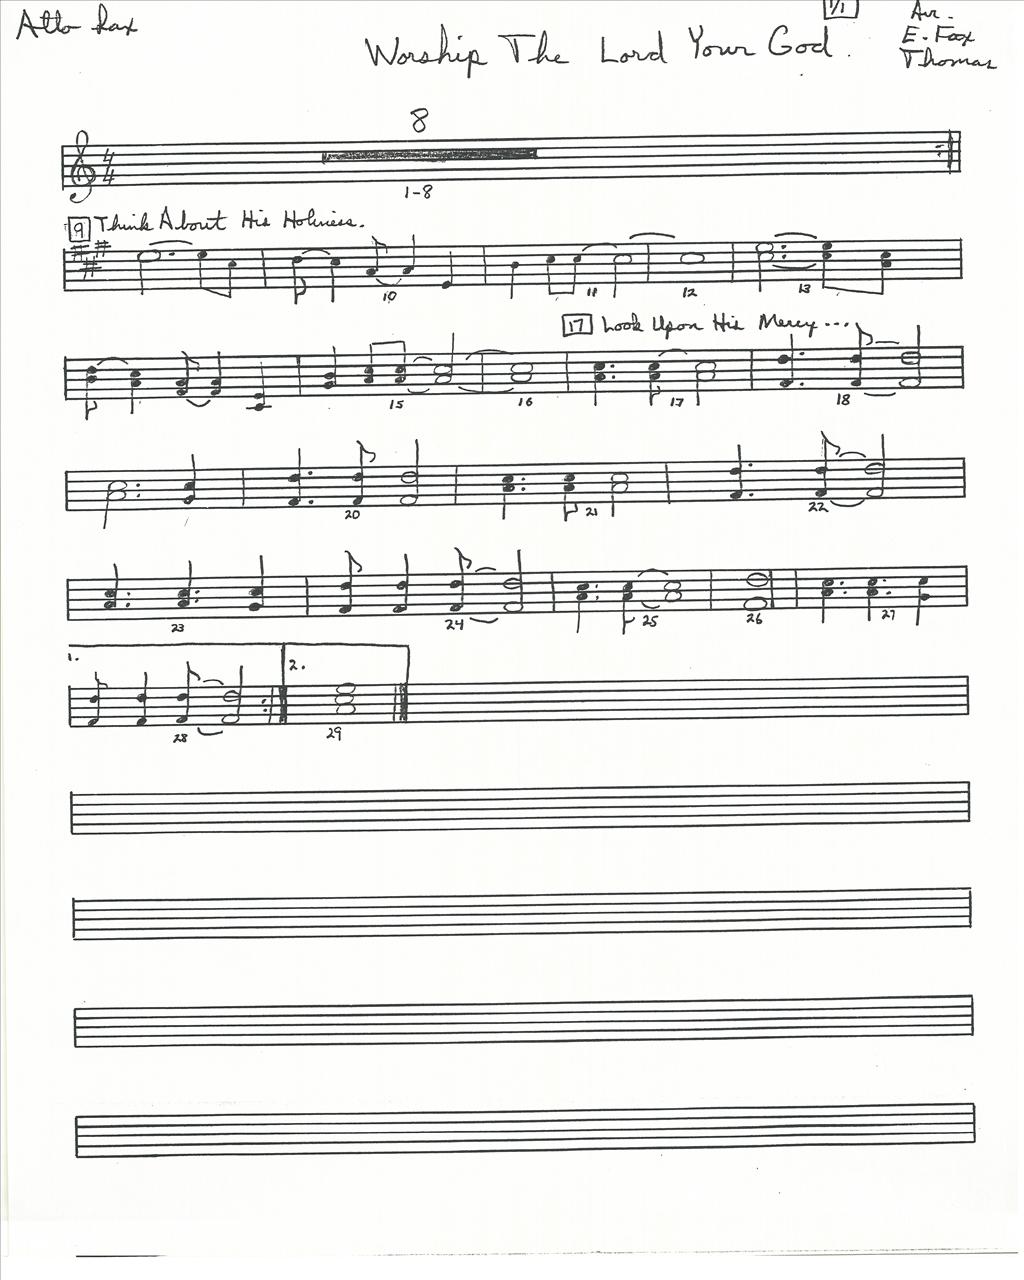 Alto Sax
1/1
Worship The Lord Your God.
Arr.
E. Fax
Thomas
8
4/4
1-8
9 Think About His Holiness.
10 11 12 13
17 Look Upon His Mercy...
15 16 17 18
20 21 22
23 24 25 26 27
1. 2.
28 29